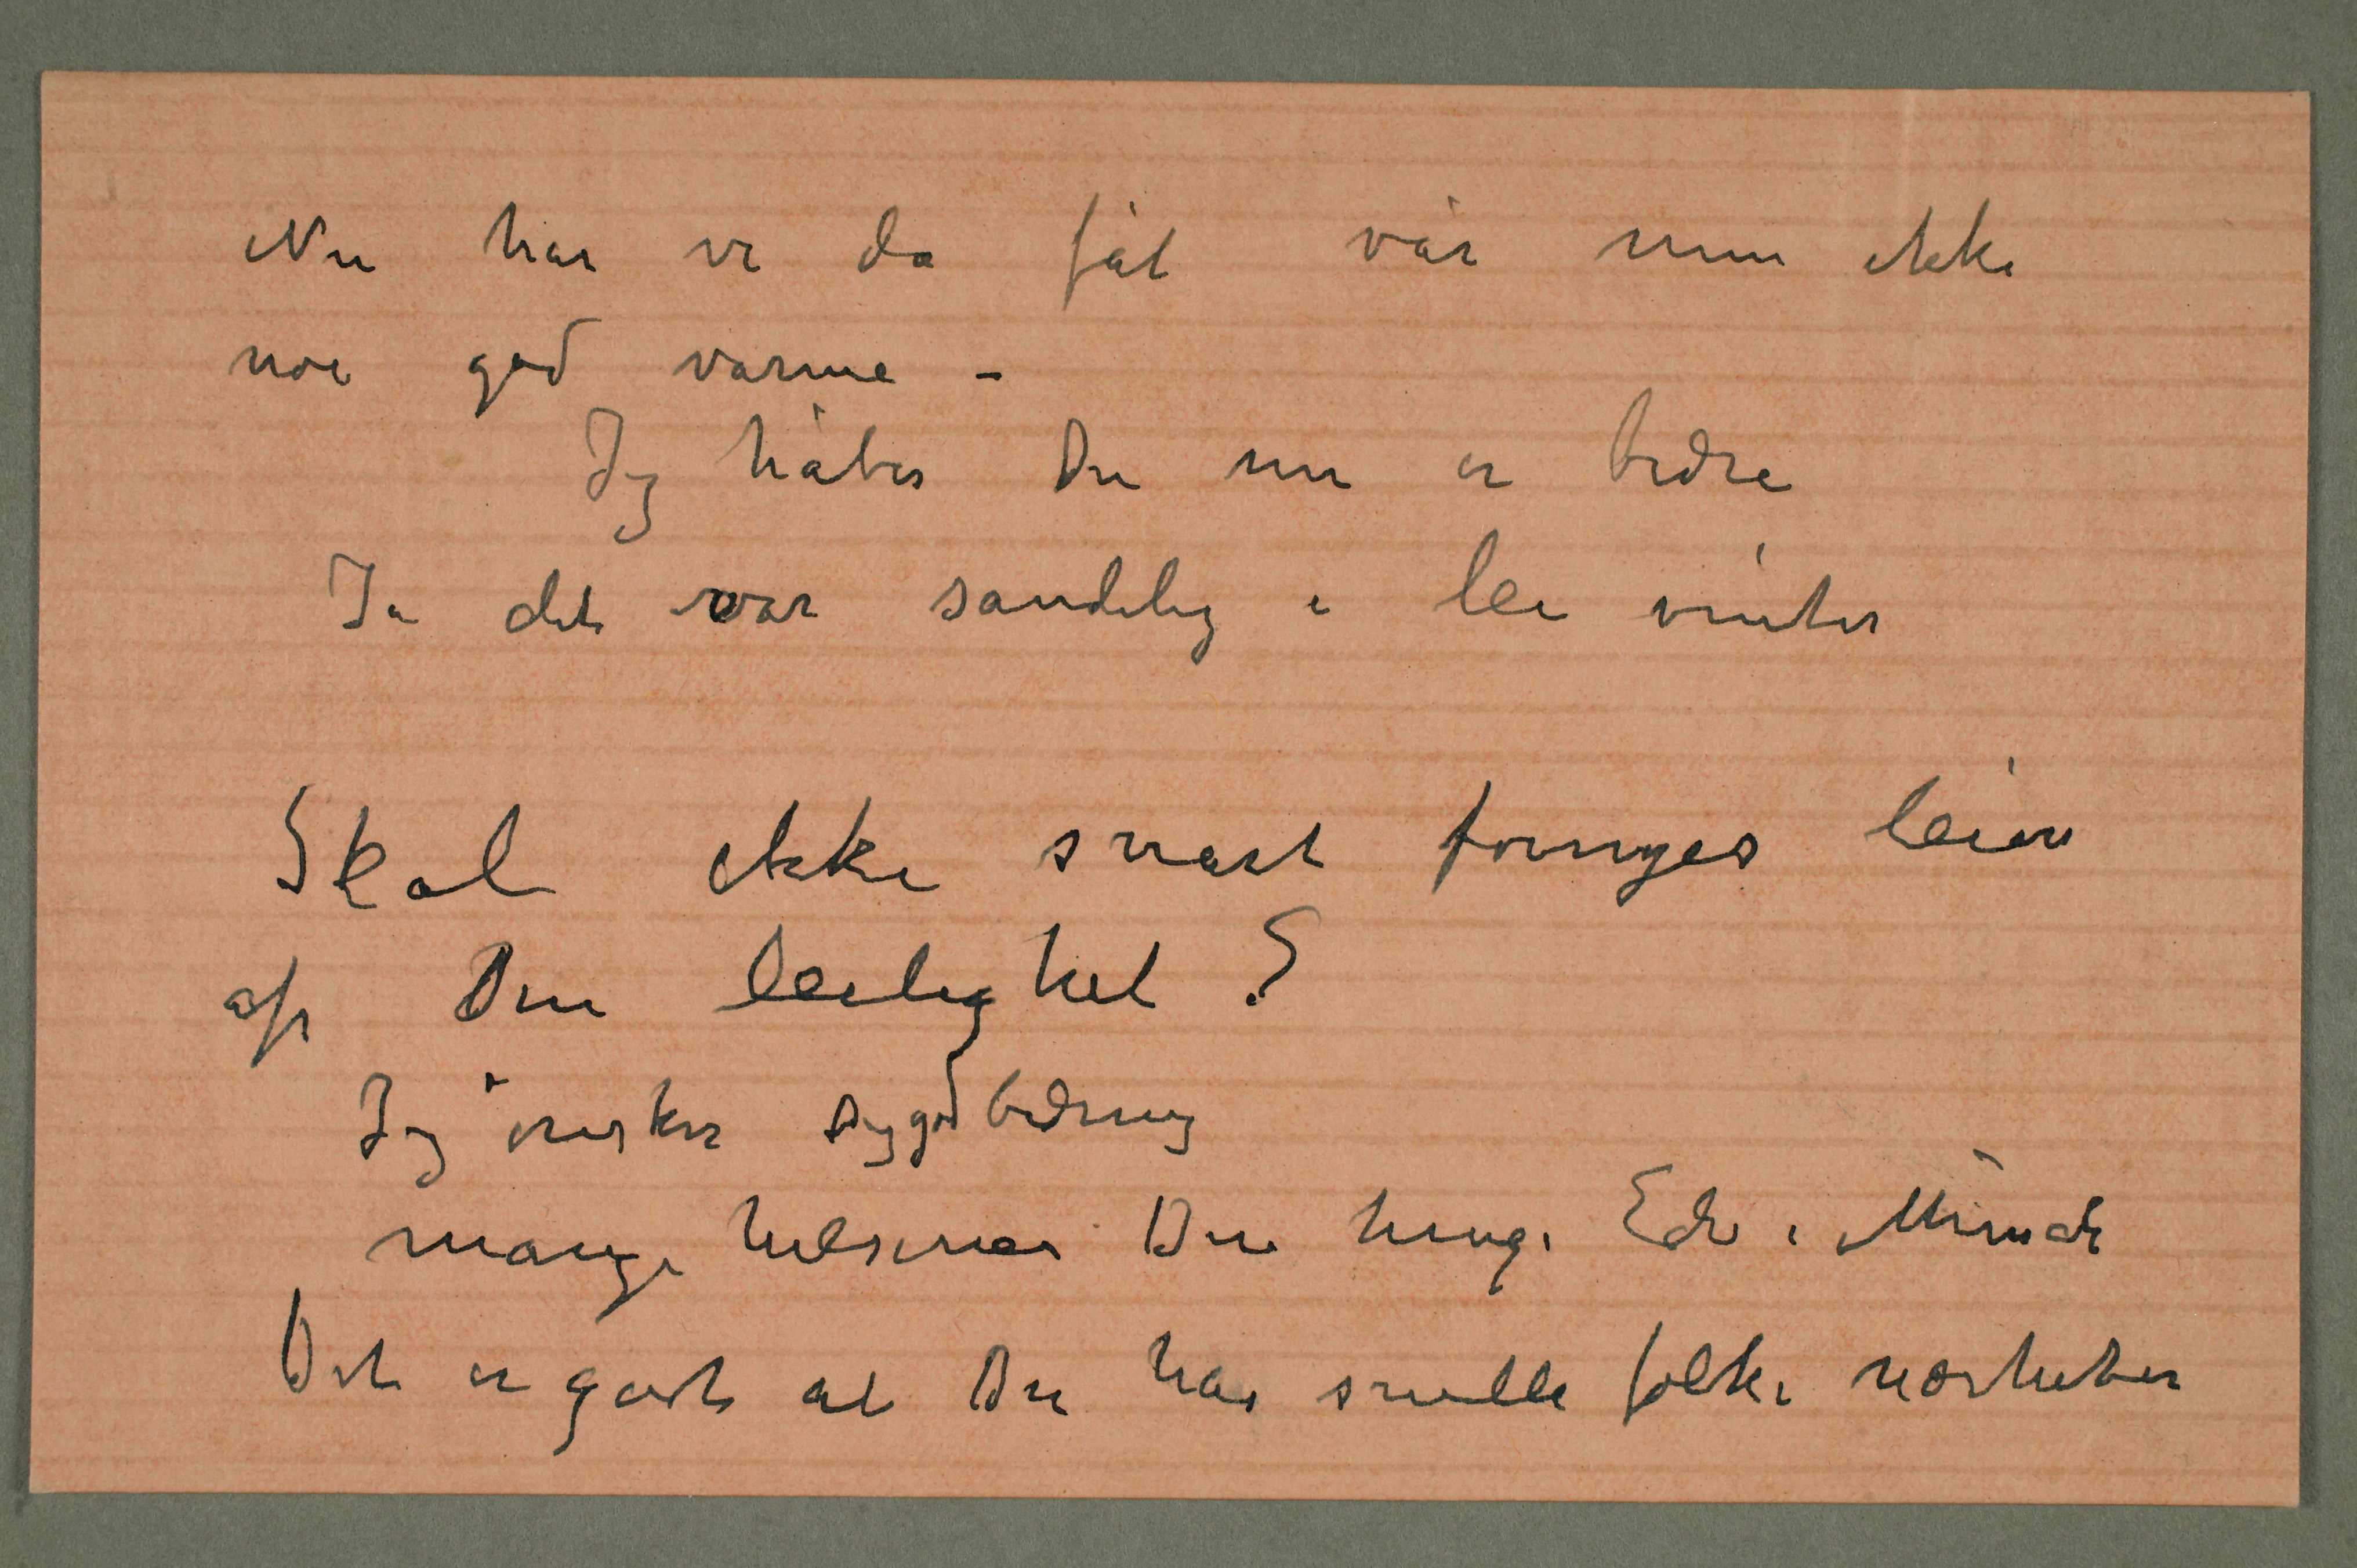 Nu har vi da fåt vår men ikke
noe god varme –
Jeg håber Du nu er bedre
Ja det var sandelig e lei vinter
Skal ikke snart fornyes leien
af Din leilighet?
Jeg ønsker Dig god bedring
mange hilsener Din heng. Edv. Munch
Det er godt at Du har snille folk i nærheten